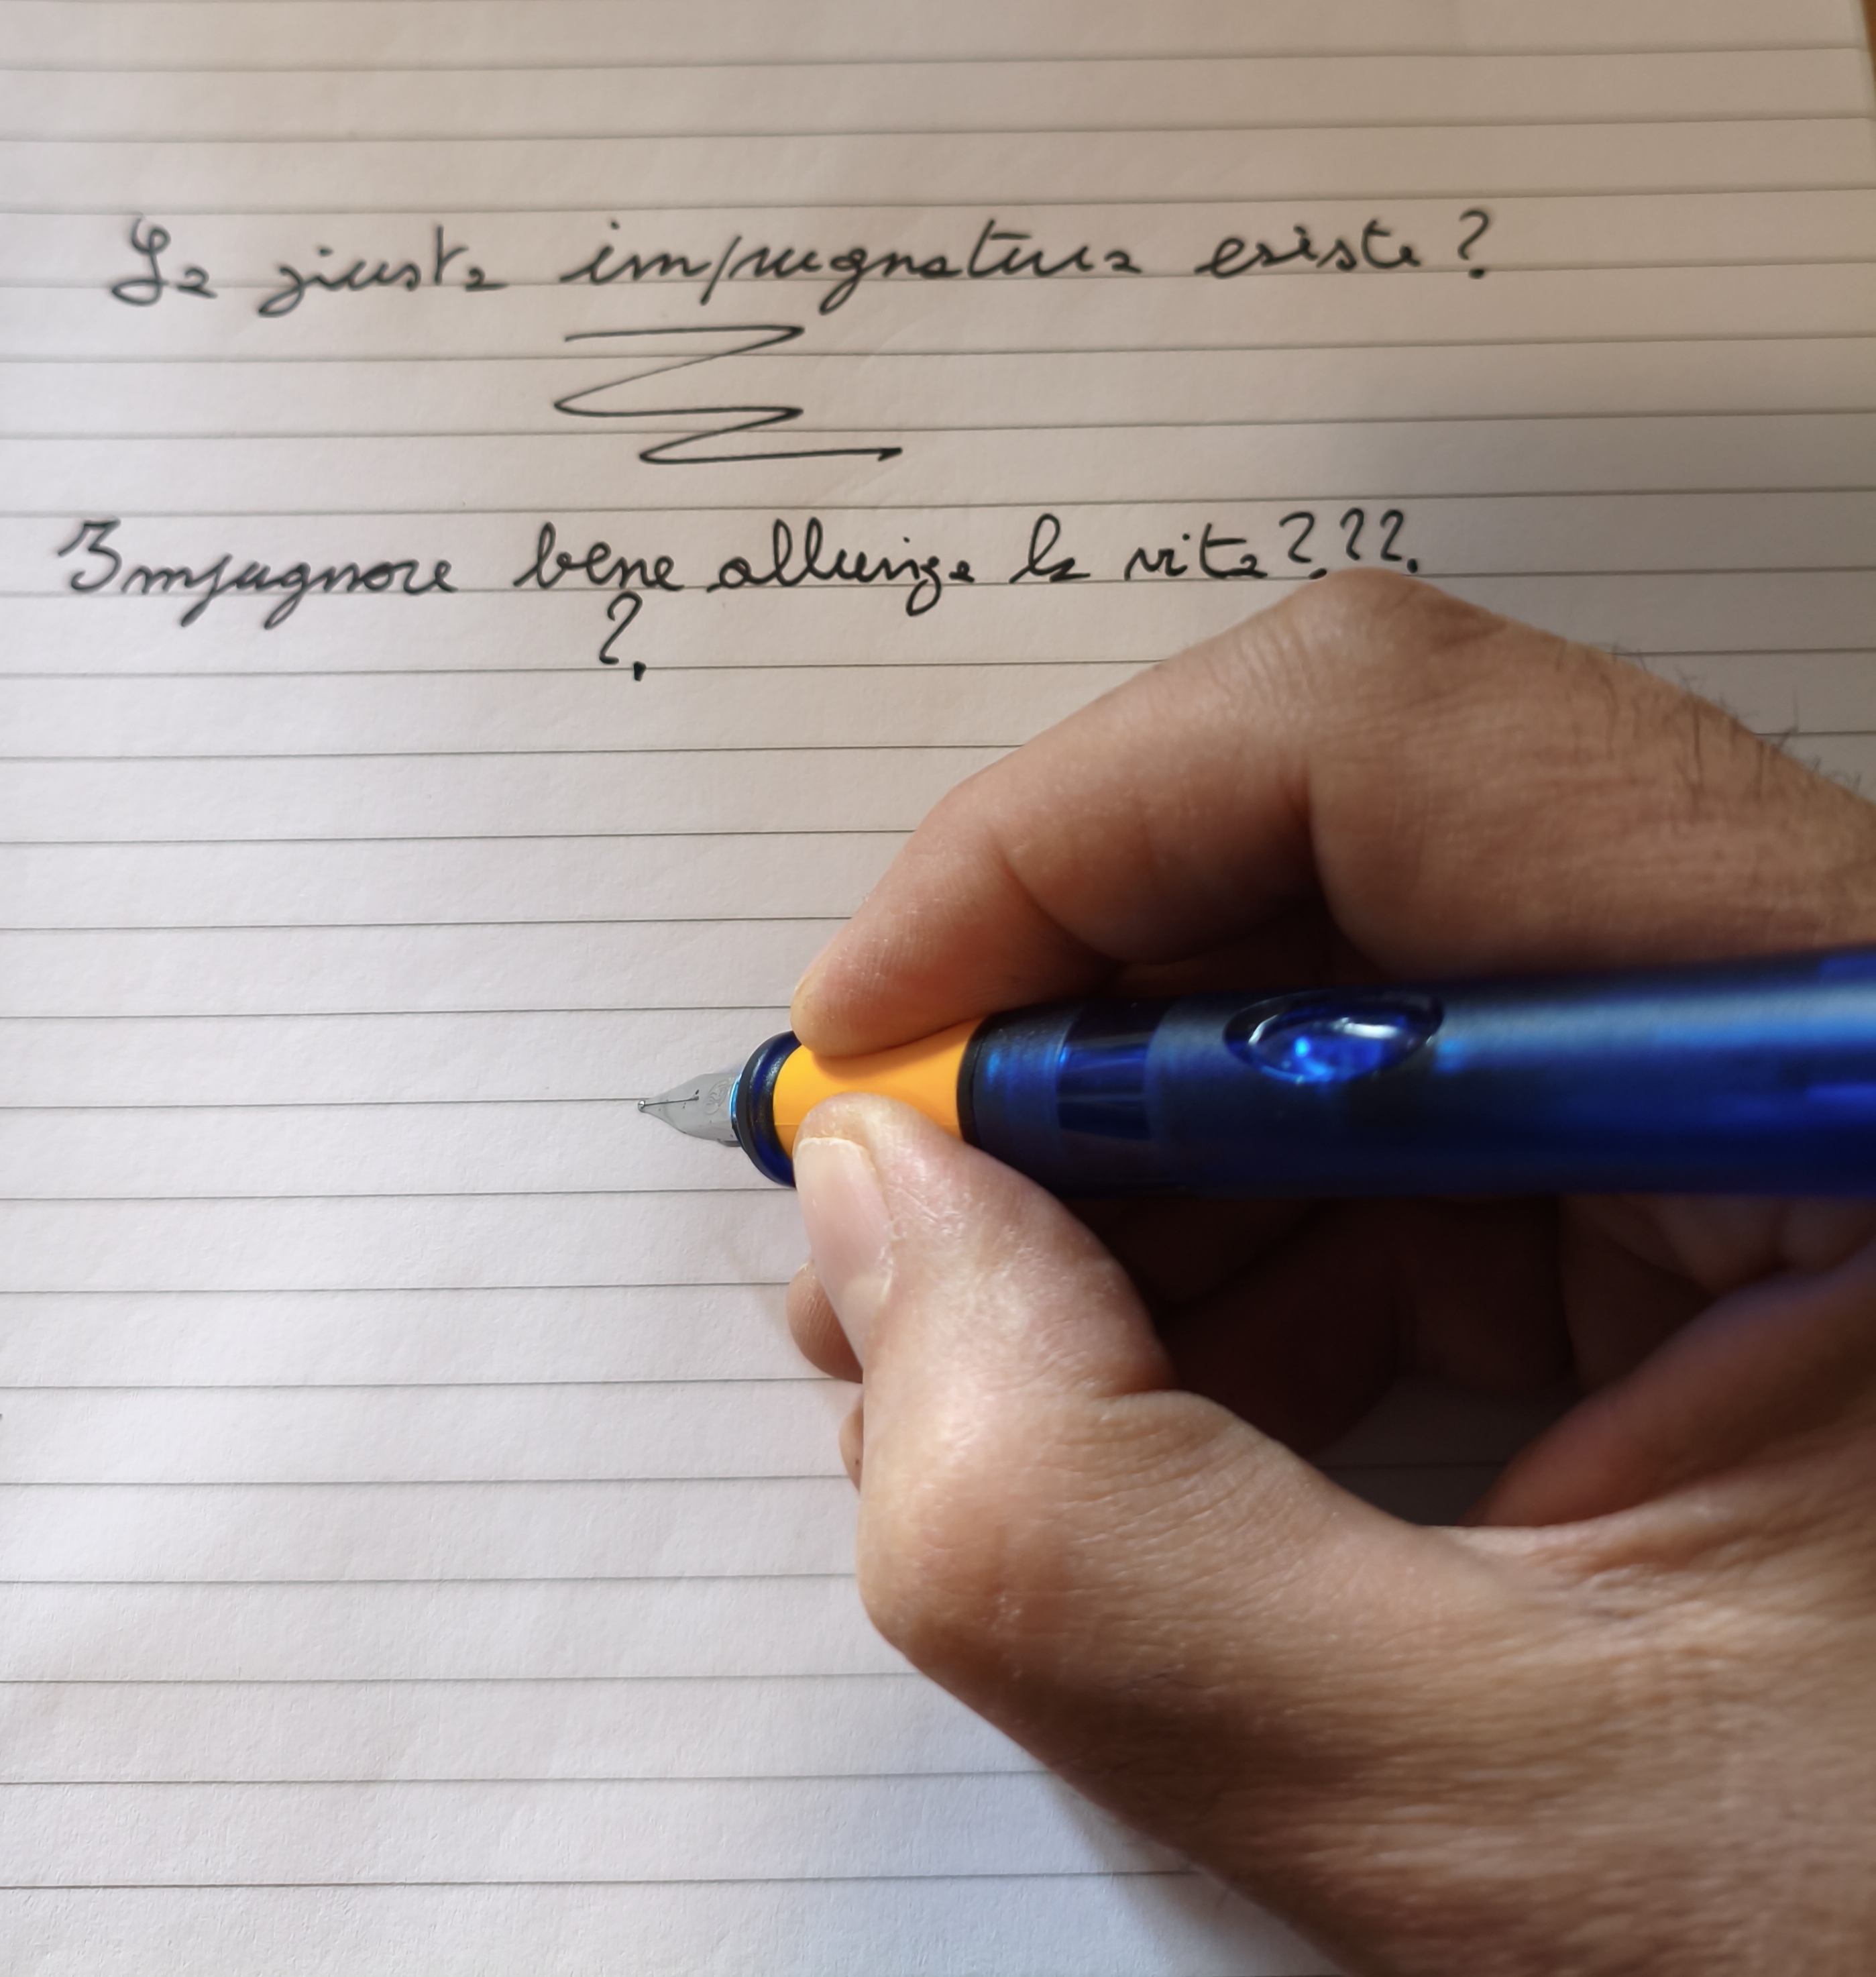 La giusta impugnatura esiste?
Impugnare bene allunga la vita???.
?.